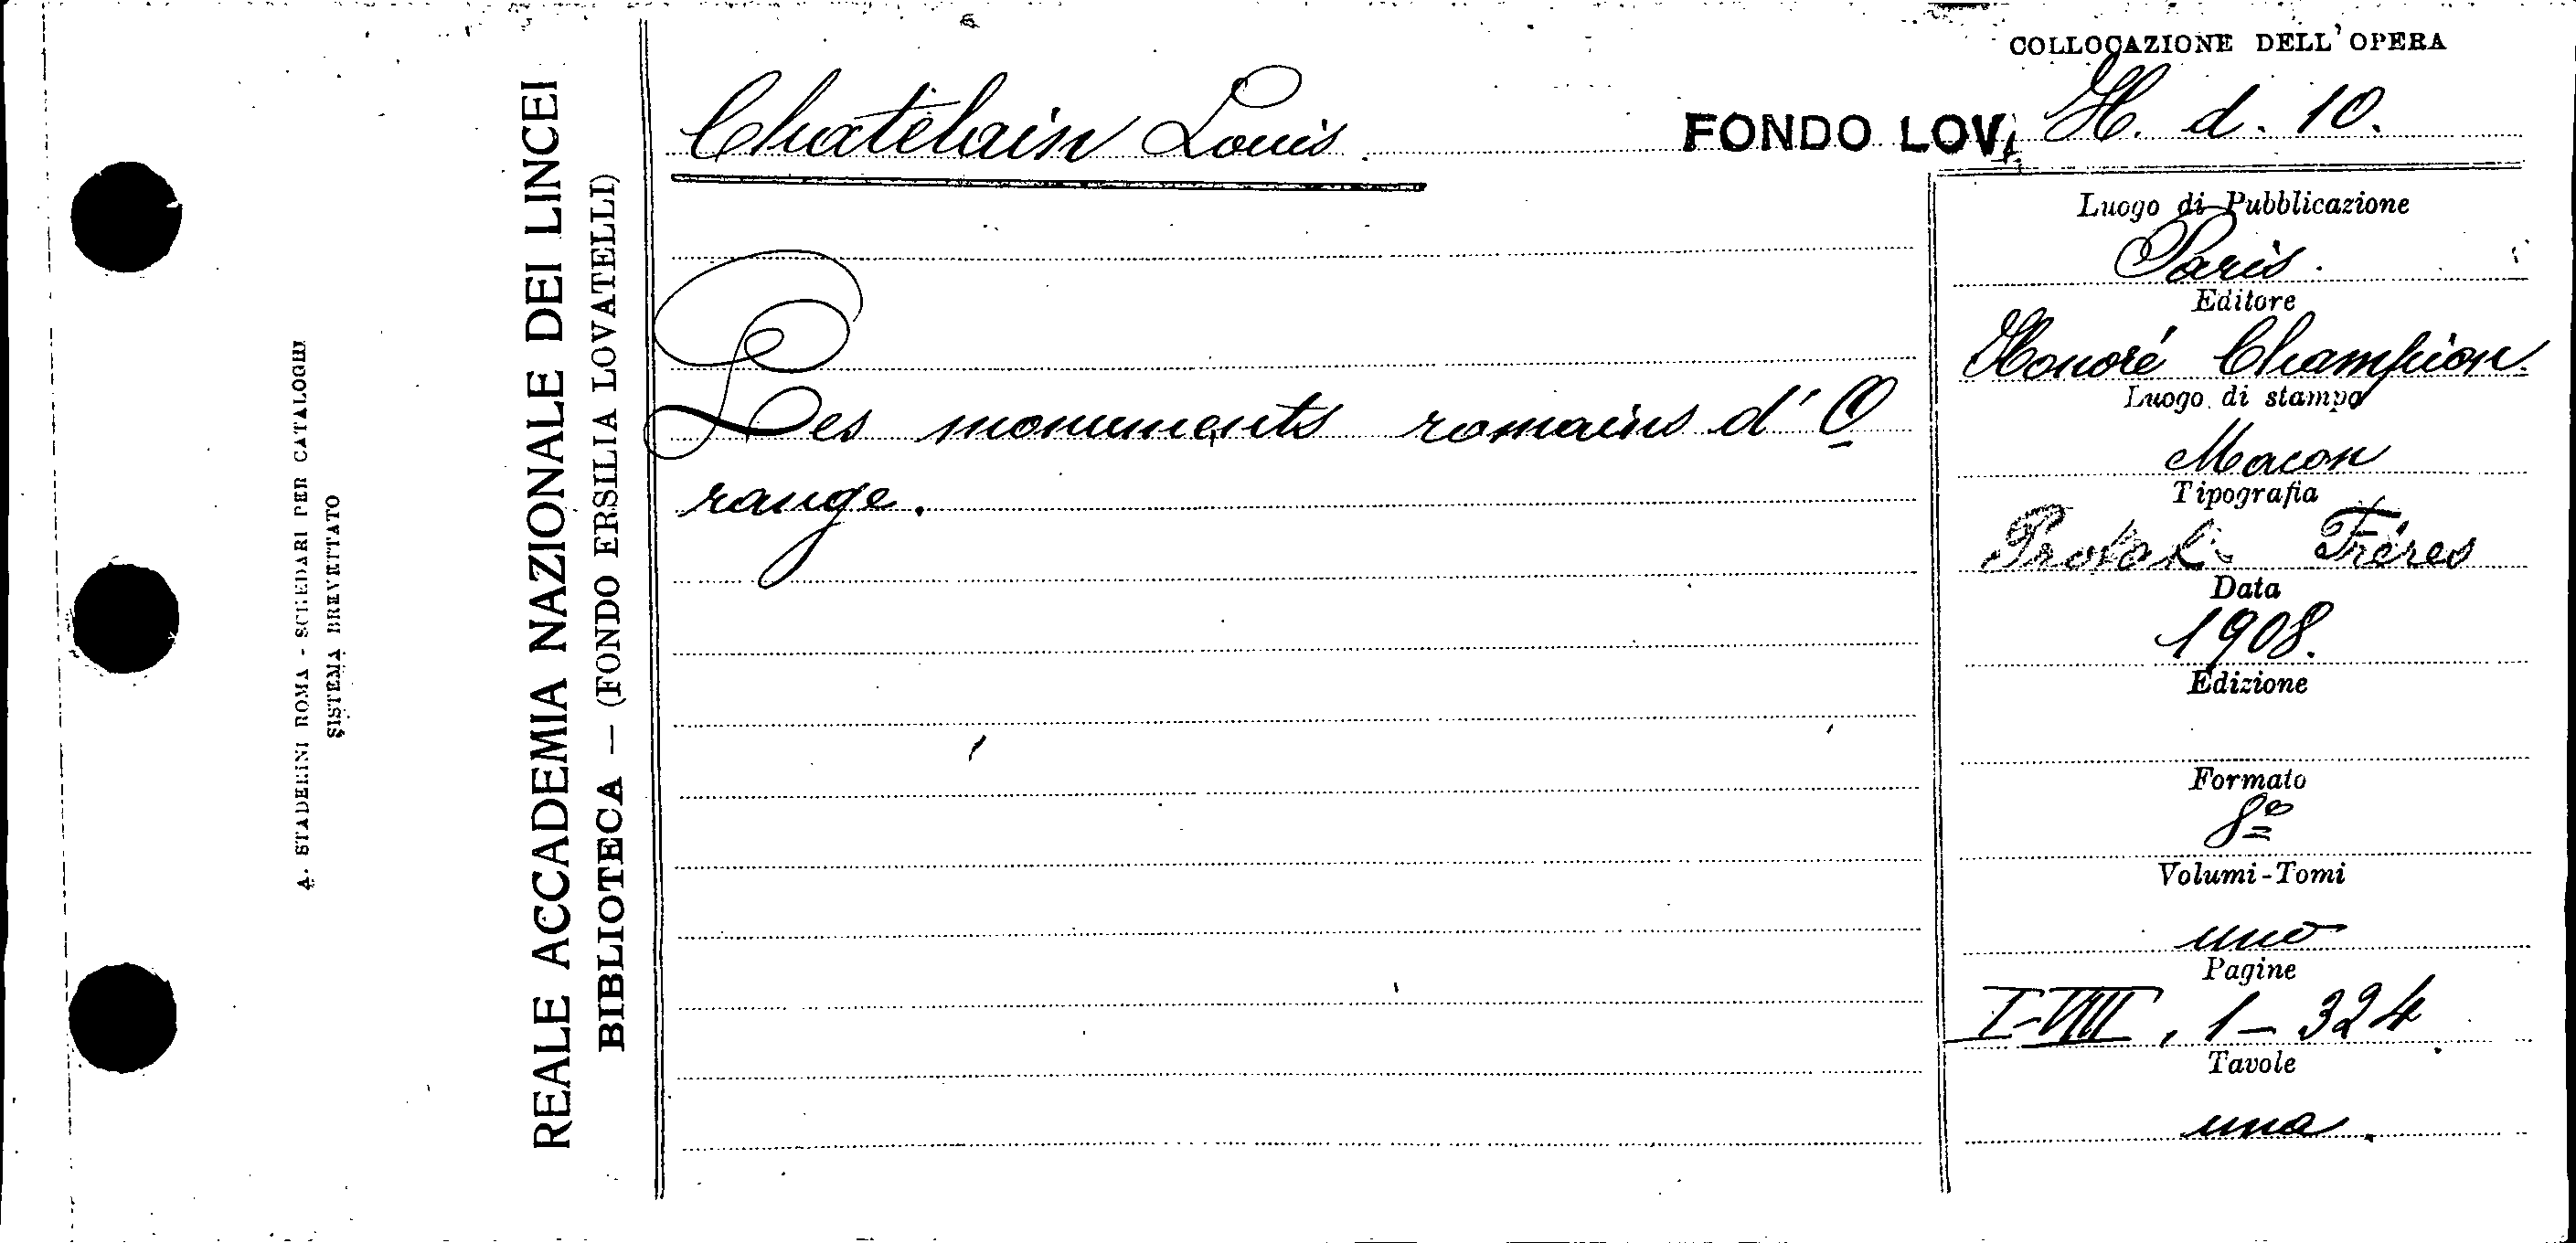 A. STADERINI ROMA - SCHEDARI PER CATALOGHI
SISTEMA BREVETTATO
REALE ACCADEMIA NAZIONALE DEI LINCEI
BIBLIOTECA — (FONDO ERSILIA LOVATELLI)
Chatelain Louis.
Les monuments romains d'O
range.
COLLOCAZIONE DELL'OPERA
FONDO LOV. H. d. 10.
Luogo di Pubblicazione
Paris.
Editore
Honoré Champion.
Luogo di stampa
Macon
Tipografia
Protat Fréres
Data
1908.
Edizione
Formato
8º
Volumi-Tomi
uno
Pagine
I-VIII, 1-324.
Tavole
una.